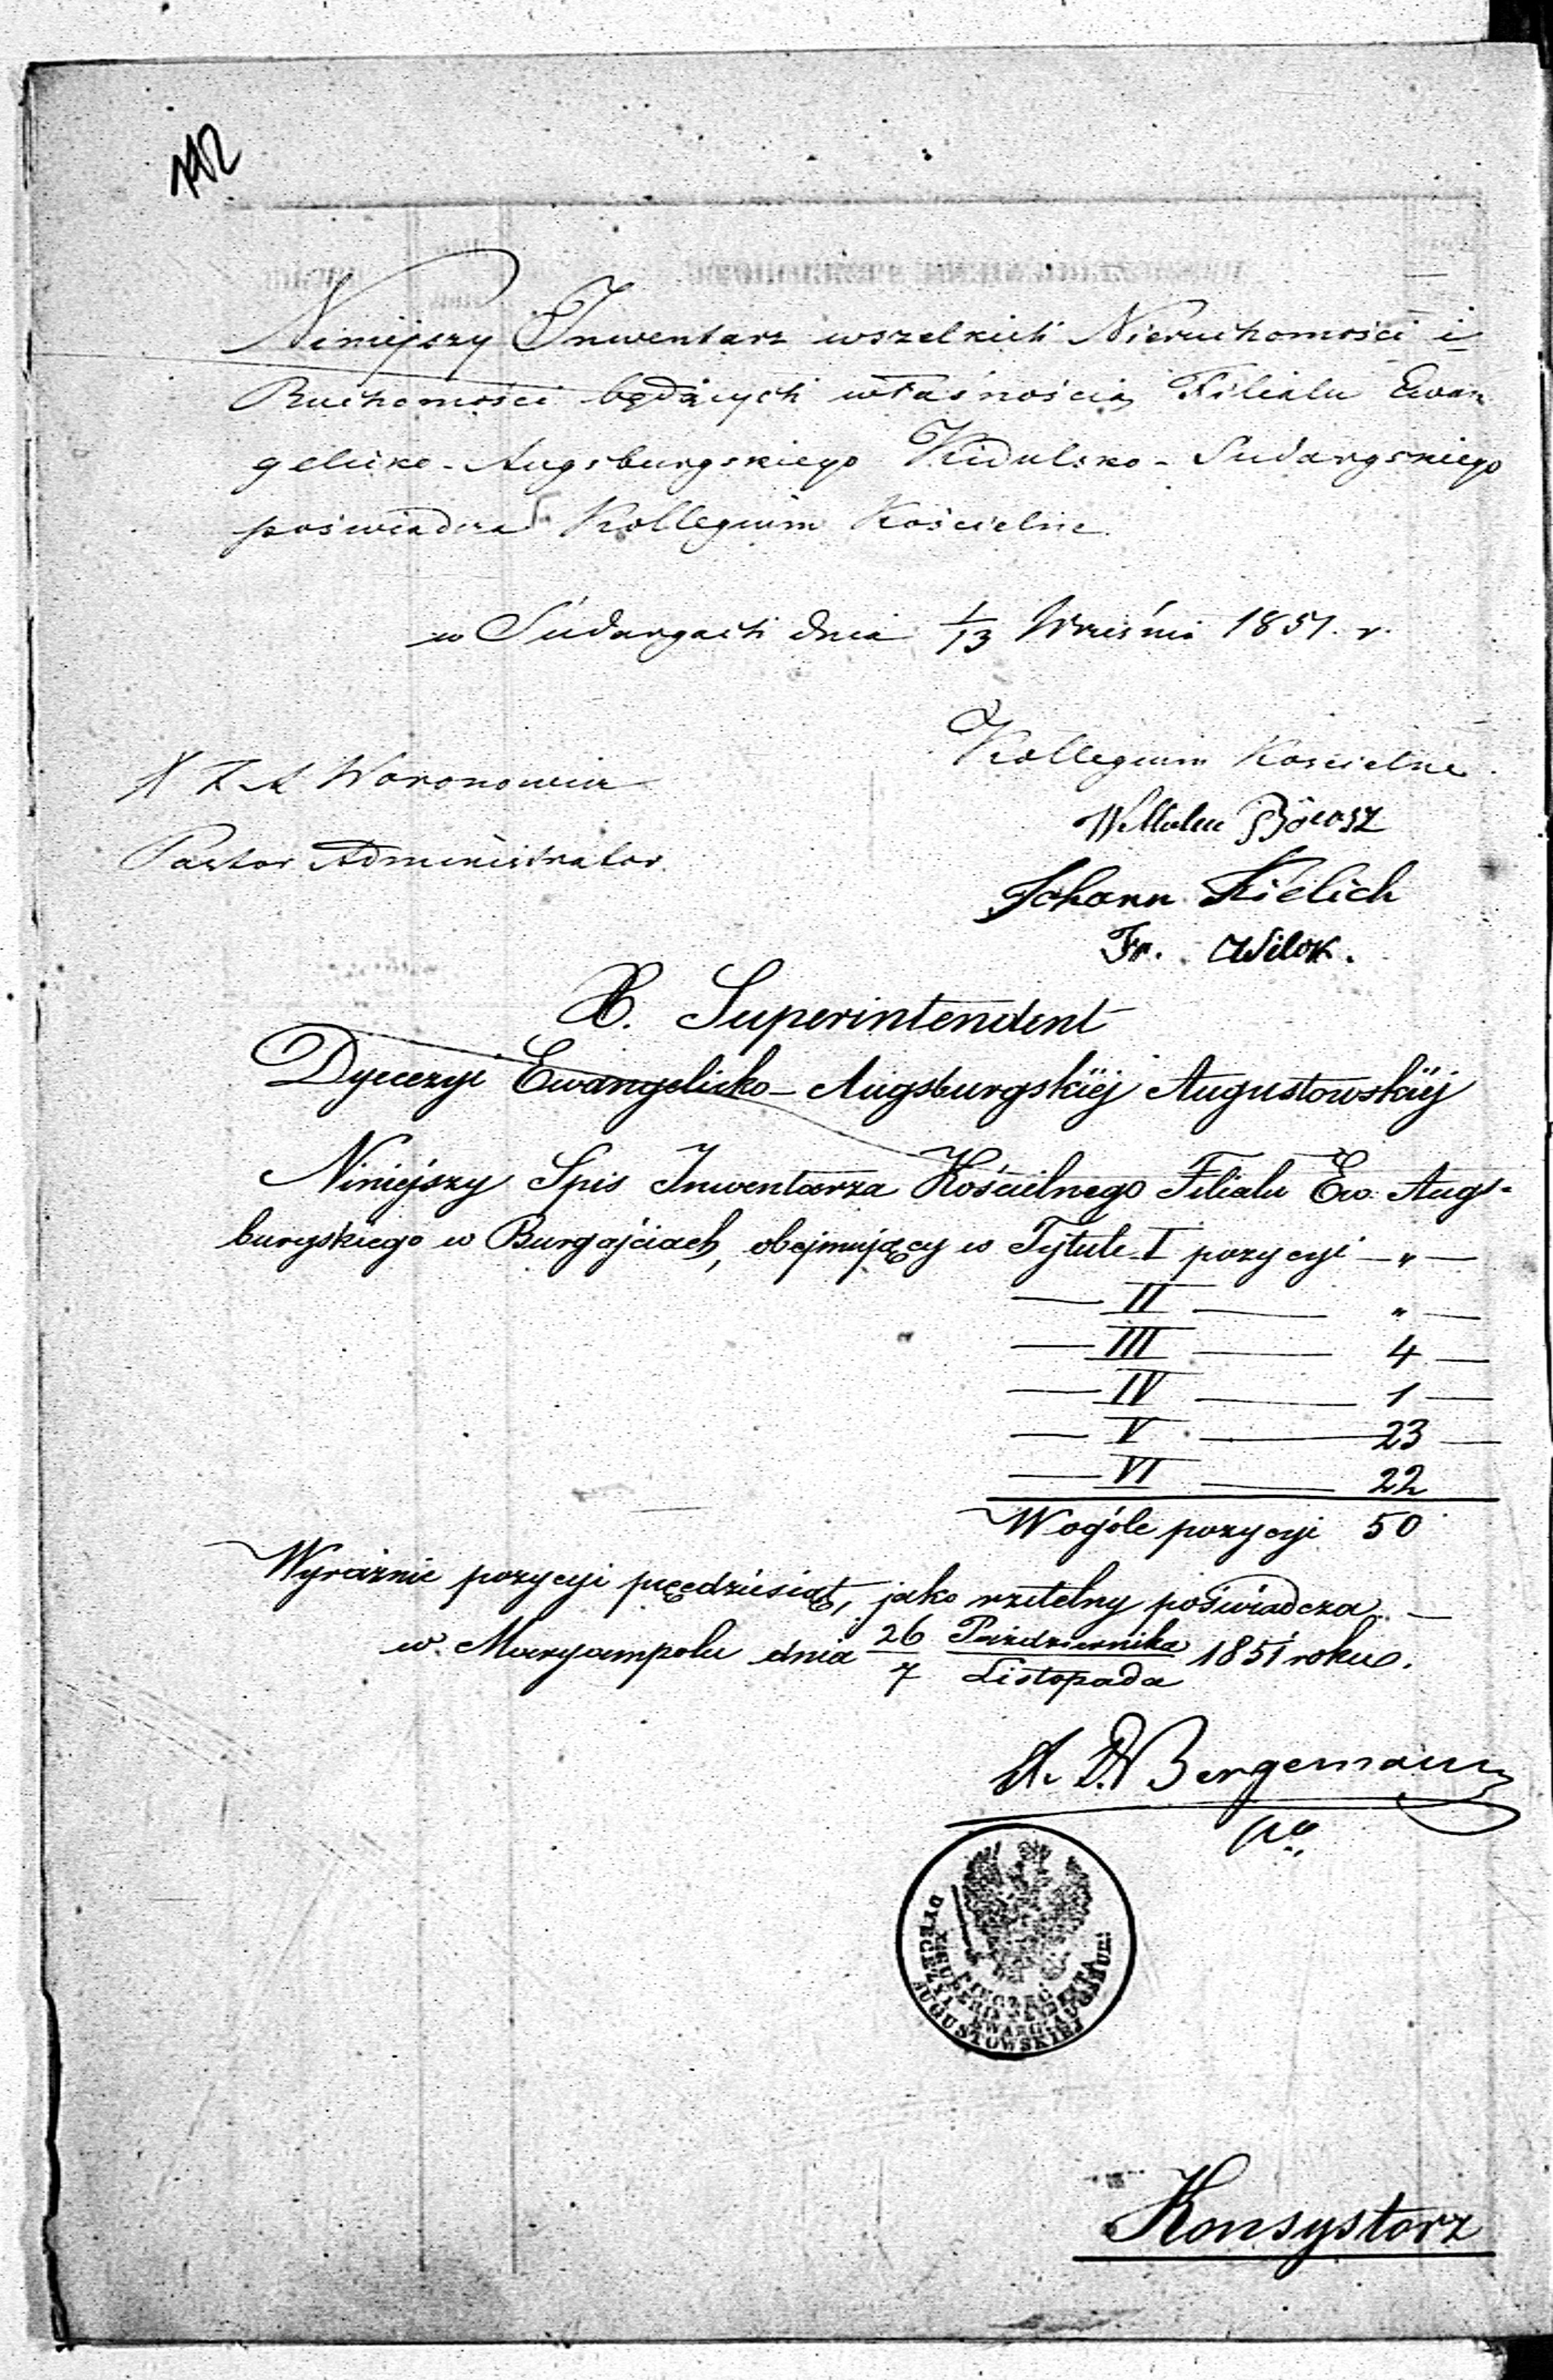 112
Niniejszy Inwentarz wszelkich Nieruchomości i
Ruchomości będących własnością Filiału Ewan
gelicko-Augsburgskiego Kidulsko-Sudargskiego
poświadcza Kollegium Kościelne.
w Sudargach dnia 1/13 Września 1851. r.
Kollegium Kościelne
Woronowicz
Pastor Administrator.
Johann Kielich
Fr. Wilok.
X. Superintendent
Dyecezyi Ewangelicko-Augsburgskiéj Augustowskiéj
Niniejszy Spis Inwentarza Kościelnego Filialu Ew. Augs-
burgskiego w Burgajciach, obejmujący w Tytule I pozycyi — „ —
— II — „ —
— III — 4 —
— IV — 1 —
— V — 23 —
— VI — 22
Wogóle pozycyi 50
Wyraźnie pozycyi pięćdziesiąt, jako rzetelny poświadcza. —
w Maryampolu dnia 26/7 Października/Listopada 1851 roku.
Bergemann
PIECZĘĆ
X. SUPERINTENDENTA
DYECEZYI EWANG: AUGSBUR:
AUGUSTOWSKIEJ
Konsystorz